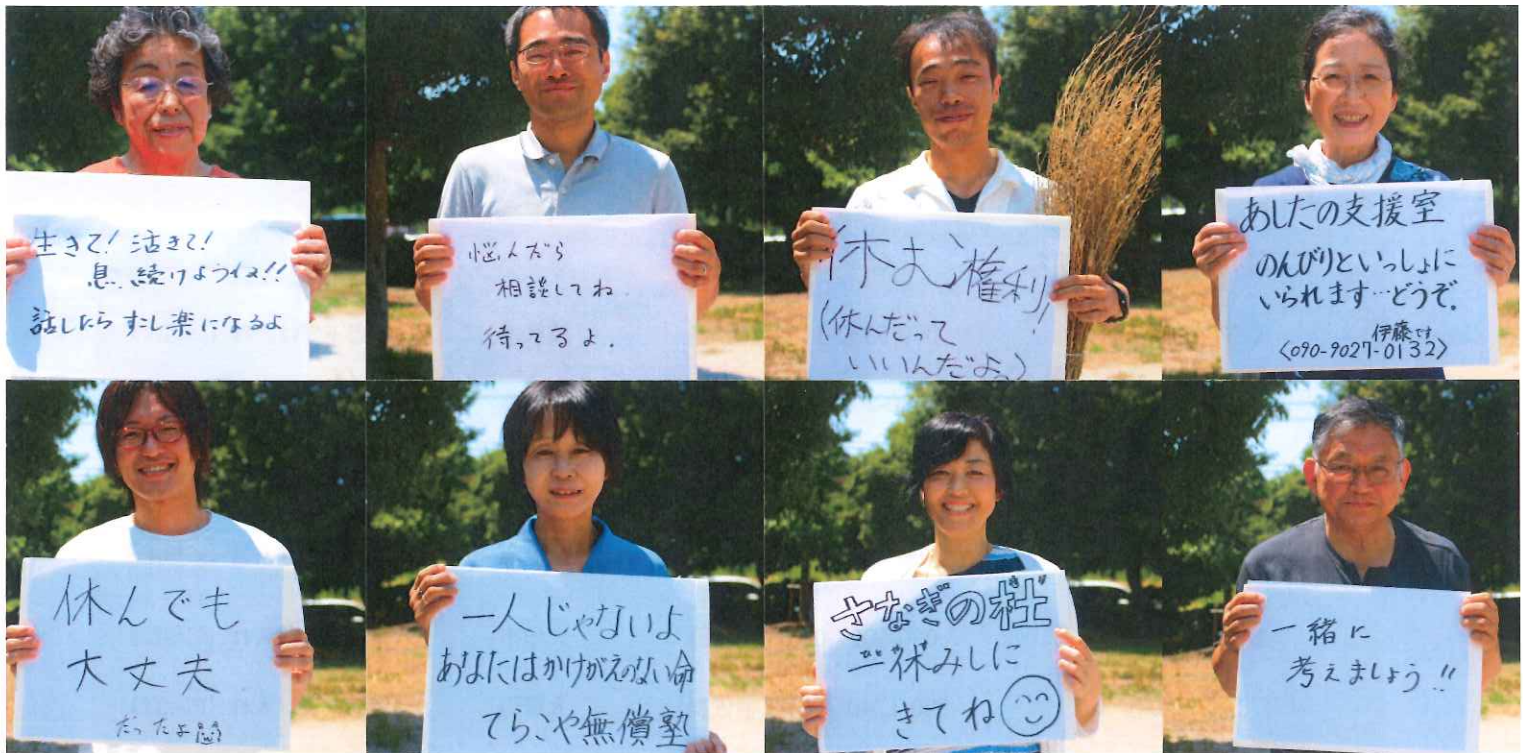 生きて！活きて！
息、続けようね!!
話したら すこし楽になるよ
悩んだら
相談してね。
待ってるよ.
休む権利！
(休んだって
いいんだよ。)
あしたの支援室
のんびりといっしょに
いられます…どうぞ。
伊藤です
〈090-9027-0132〉
休んでも
大丈夫
だったよ
一人じゃないよ
あなたはかけがえのない命
てらこや無償塾
さなぎの杜
一休みしに
きてね
一緒に
考えましょう!!